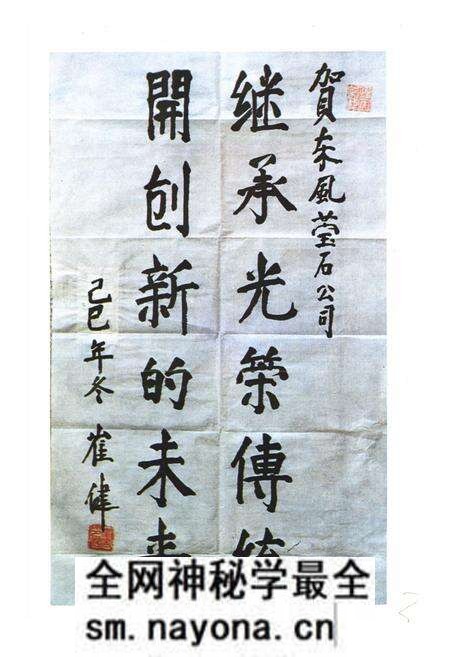 賀东風莹石公司
继承光荣傳統
開创新的未来
己巳年冬 崔健
全网神秘学最全
sm.nayona.cn